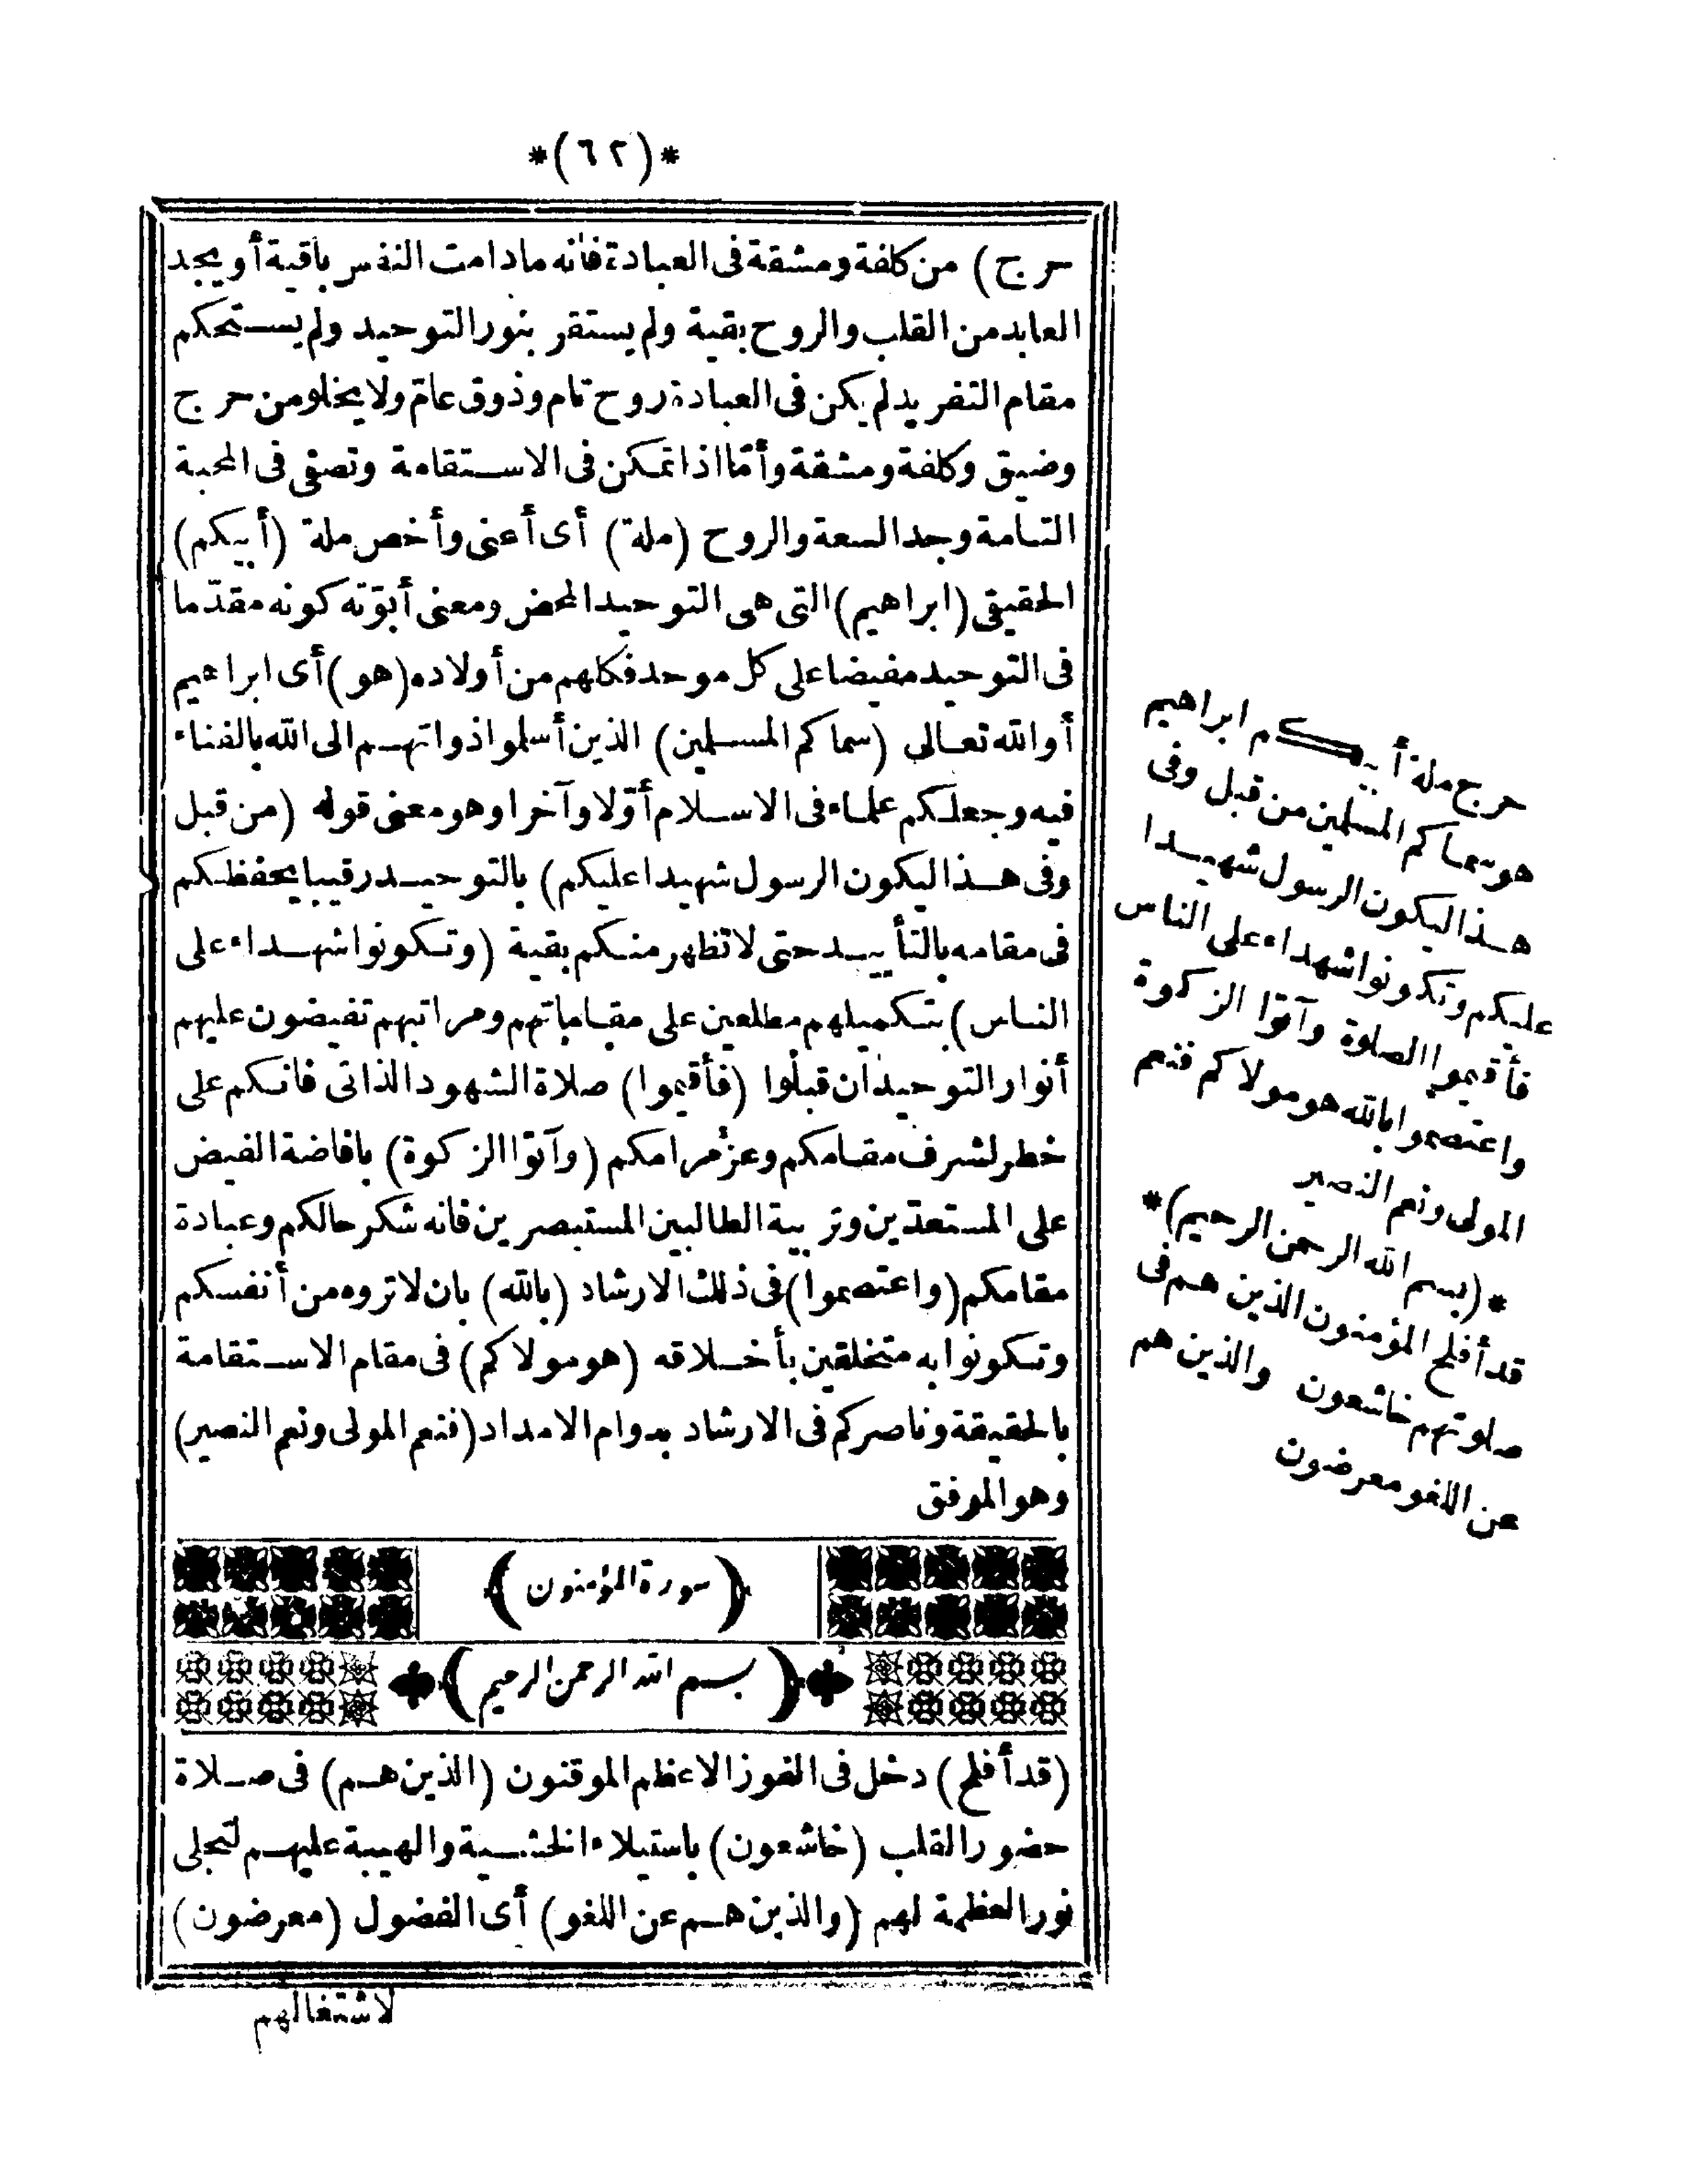 *(٦٢)*
حرج) من كلفة ومشقة فى العبادة فانه مادامت النفس باقية أو يجد
العابد من القلب والروح بقية ولم يستقر بنور التوحيد ولم يستحكم
مقام التفريد لم يكن فى العبادة روح تام وذوق عامّ ولا يخلو من حرج
وضيق وكلفة ومشقة وأمّا اذا تمكن فى الاستقامة وتصفى فى المحبة
التامة وجد السعة والروح (ملة) أى أعنى وأخص ملة (أبيكم)
الحقيقى (ابراهيم) التى هى التوحيد المحض ومعنى أبوّته كونه مقدّما
فى التوحيد مفيضا على كل موحد فكلهم من أولاده (هو) أى ابراهيم
أو الله تعالى (سماكم المسلمين) الذين أسلموا ذواتهم الى الله بالفناء
فيه وجعلكم علماء فى الاسلام أوّلا وآخرا وهو معنى قوله (من قبل
وفى هذا ليكون الرسول شهيدا عليكم) بالتوحيد رقيبا يحفظكم
فى مقامه بالتأييد حتى لا تظهر منكم بقية (وتكونوا شهداء على
الناس) بتكميلهم مطلعين على مقاماتهم ومراتبهم تفيضون عليهم
أنوار التوحيد ان قبلوا (فأقيموا) صلاة الشهود الذاتى فانكم على
خطر لشرف مقامكم وعز مرامكم (وآتوا الزكوة) بافاضة الفيض
على المستعدّين وتربية الطالبين المستبصرين فانه شكر حالكم وعبادة
مقامكم (واعتصموا) فى ذلك الارشاد (بالله) بان لا تروه من أنفسكم
وتكونوا به متخلقين بأخلاقه (هو مولاكم) فى مقام الاستقامة
بالحقيقة وناصركم فى الارشاد بدوام الامداد (فنعم المولى ونعم النصير)
وهو الموفق
(سورة المؤمنون)
(بسم الله الرحمن الرحيم)
(قد أفلح) دخل فى الفوز الاعظم الموقنون (الذين هم) فى صلاة
حضور القلب (خاشعون) باستيلاء الخشية والهيبة عليهم لتجلى
نور العظمة لهم (والذين هم عن اللغو) أى الفضول (معرضون)
لاشتغالهم
حرج ملة أبيكم ابراهيم
هو سماكم المسلمين من قبل وفى
هذا ليكون الرسول شهيدا
عليكم وتكونوا شهداء على الناس
فأقيموا الصلوة وآتوا الزكوة
واعتصموا بالله هو مولاكم فنعم
المولى ونعم النصير
*(بسم الله الرحمن الرحيم)*
قد أفلح المؤمنون الذين هم فى
صلوتهم خاشعون والذين هم
عن اللغو معرضون